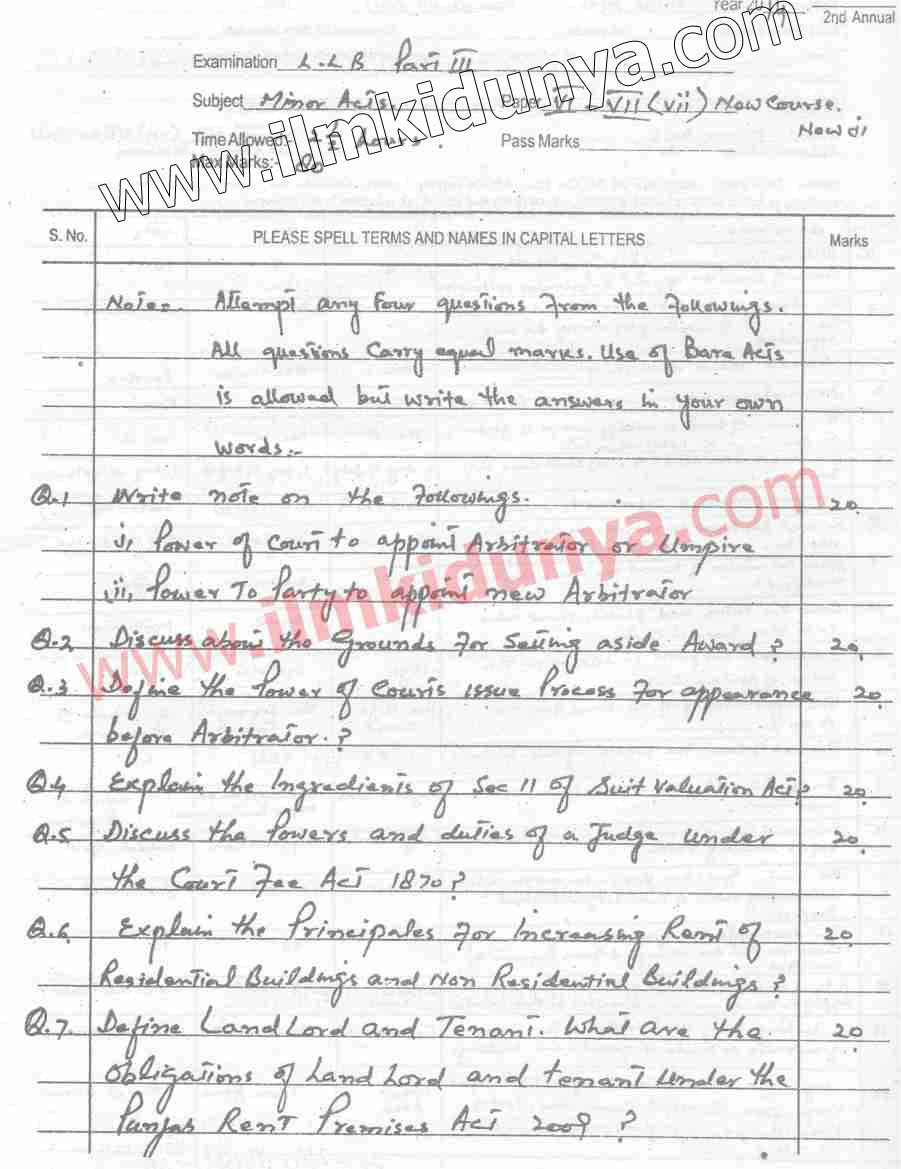 Year 20
2nd Annual
Examination L.L.B Part III
Subject Minor Acts. Paper VI - VII (vii) New Course.
Time Allowed:- 2½ hours. Pass Marks
Max Marks:- 80
www.ilmkidunya.com
S. No. PLEASE SPELL TERMS AND NAMES IN CAPITAL LETTERS Marks
Note:- Attempt any Four questions From the Followings.
All questions Carry equal marks. Use of Bare Acts
is allowed but write the answers in your own
words:-
Q.1 Write note on the Followings. 20.
i, Power of Court to appoint Arbitrator or Umpire
ii, Power To Party to appoint new Arbitrator
www.ilmkidunya.com
Q.2 Discuss about the Grounds For Setting aside Award? 20.
Q.3 Define the Power of Courts issue Process For appearance 20.
before Arbitrator.?
Q.4 Explain the Ingredients of Sec 11 of Suit Valuation Act? 20.
Q.5 Discuss the Powers and duties of a Judge under 20.
the Court Fee Act 1870?
Q.6 Explain the Principales For Increasing Rent of 20
Residential Buildings and Non Residential Buildings?
Q.7. Define Land Lord and Tenant. What are the 20.
obligations of Land Lord and tenant under the
Punjab Rent Premises Act 2009?